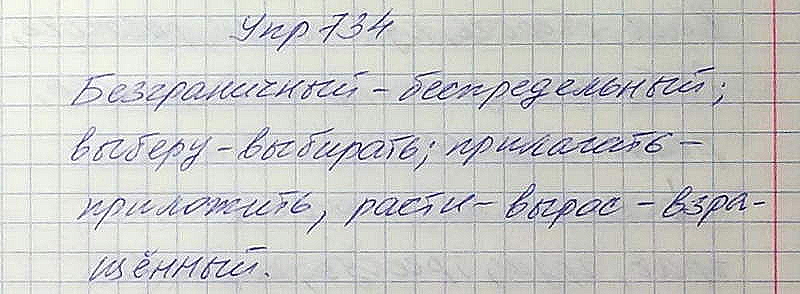 Упр 734
Безграничный - беспредельный;
выберу - выбирать; прилагать -
приложить, расти - вырос - взра-
щённый.